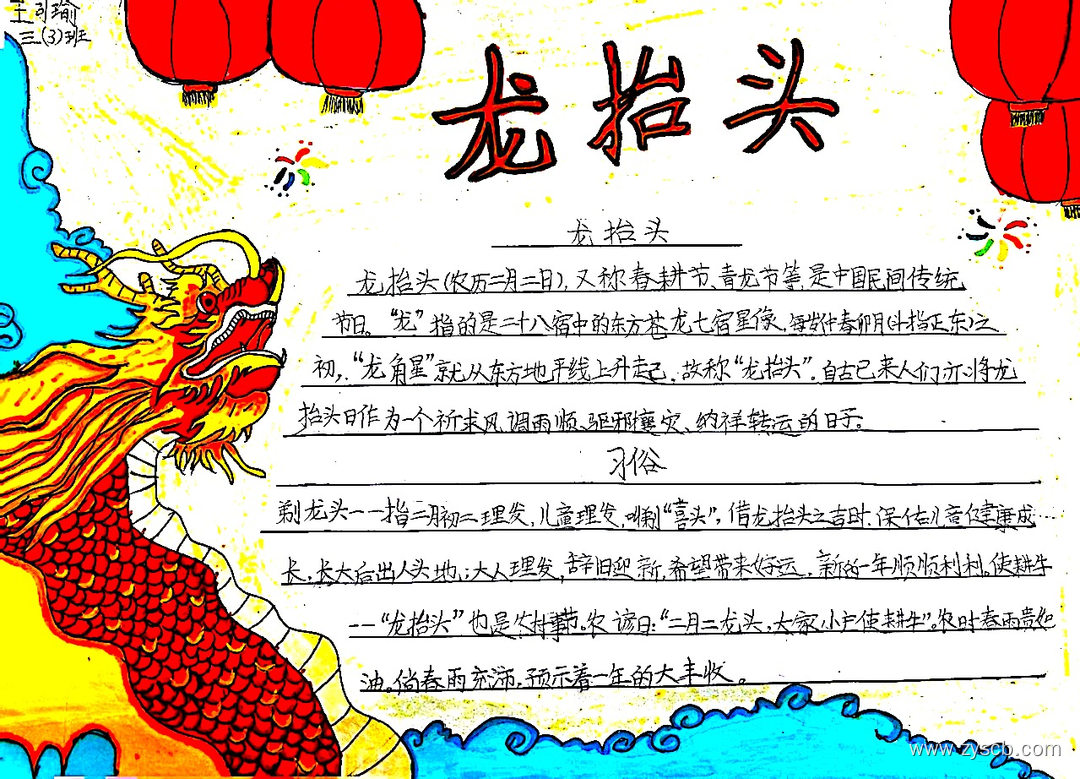 王可瑜
三(3)班
龙抬头
龙抬头
龙抬头(农历二月二日),又称春耕节、青龙节等,是中国民间传统
节日。“龙”指的是二十八宿中的东方苍龙七宿星像,每岁仲春卯月(斗指正东)之
初,“龙角星”就从东方地平线上升起,故称“龙抬头”。自古已来人们亦将龙
抬头日作为一个祈求风调雨顺、驱邪攘灾、纳祥转运的日子。
习俗
剃龙头——指二月初二理发,儿童理发,叫剃“喜头”,借龙抬头之吉时,保佑儿童健康成
长,长大后出人头地;大人理发,辞旧迎新,希望带来好运,新的一年顺顺利利。使耕牛
——“龙抬头”也是农事节。农谚曰:“二月二龙头,大家小户使耕牛”。农时春雨贵如
油。倘春雨充沛,预示着一年的大丰收。
www.zyscb.com